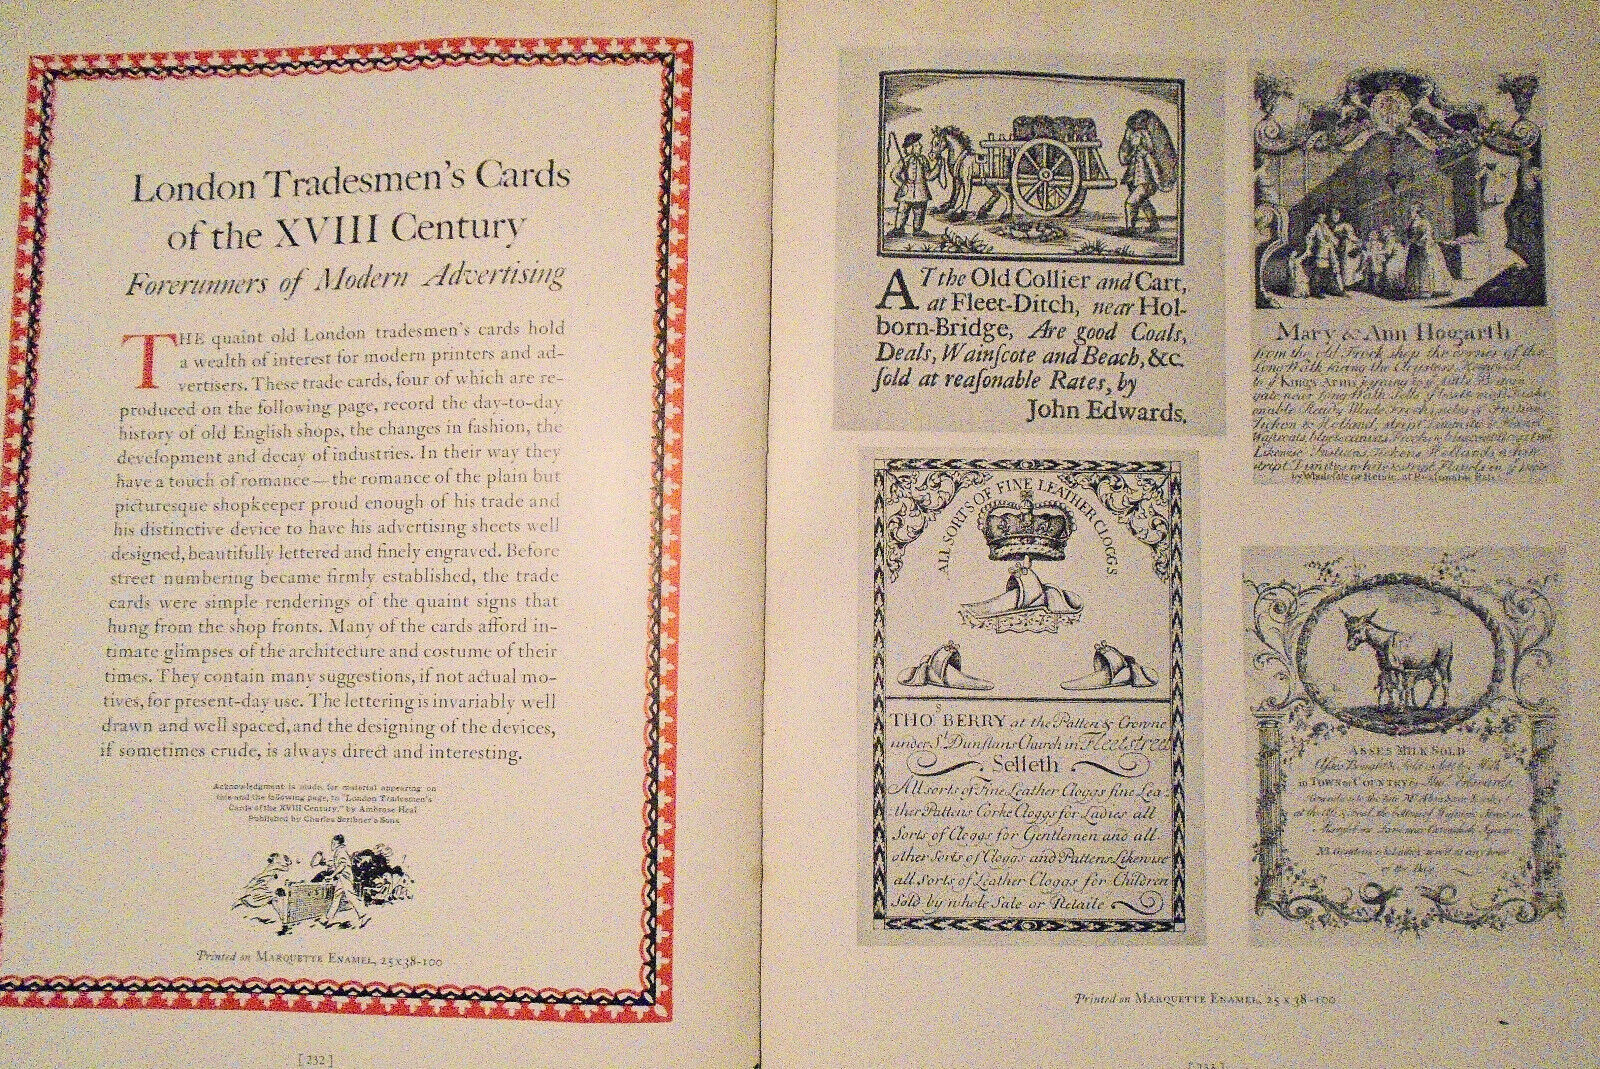 London Tradesmen's Cards
of the XVIII Century
Forerunners of Modern Advertising
THE quaint old London tradesmen's cards hold
a wealth of interest for modern printers and ad-
vertisers. These trade cards, four of which are re-
produced on the following page, record the day-to-day
history of old English shops, the changes in fashion, the
development and decay of industries. In their way they
have a touch of romance — the romance of the plain but
picturesque shopkeeper proud enough of his trade and
his distinctive device to have his advertising sheets well
designed, beautifully lettered and finely engraved. Before
street numbering became firmly established, the trade
cards were simple renderings of the quaint signs that
hung from the shop fronts. Many of the cards afford in-
timate glimpses of the architecture and costume of their
times. They contain many suggestions, if not actual mo-
tives, for present-day use. The lettering is invariably well
drawn and well spaced, and the designing of the devices,
if sometimes crude, is always direct and interesting.
Acknowledgment is made for material appearing on
this and the following page, to "London Tradesmen's
Cards of the XVIII Century," by Ambrose Heal
Published by Charles Scribner's Sons
Printed on MARQUETTE ENAMEL, 25x38-100
[ 232 ]
AT the Old Collier and Cart,
at Fleet-Ditch, near Hol-
born-Bridge, Are good Coals,
Deals, Wainſcote and Beach, &c.
ſold at reaſonable Rates, by
John Edwards.
Mary & Ann Hogarth
from the old Frock shop the corner of the
Long Walk facing the Cloysters, Remov'd
to yᵉ King's Arms joyning to yᵉ Little Britain
gate near Long Walk
ALL SORTS OF FINE LEATHER CLOGGS
THOˢ BERRY at the Patten & Crowne
under Sᵗ Dunstans Church in Fleetstreet
Selleth
All sorts of Fine Leather Cloggs fine Lea-
ther Pattens Corke Cloggs for Ladies all
Sorts of Cloggs for Gentlemen and all
other Sorts of Cloggs and Pattens Likewise
all Sorts of Leather Cloggs for Children
Sold by whole Sale or Retaile
ASSES MILK SOLD
in TOWN or COUNTRY
Printed on MARQUETTE ENAMEL, 25 x 38-100